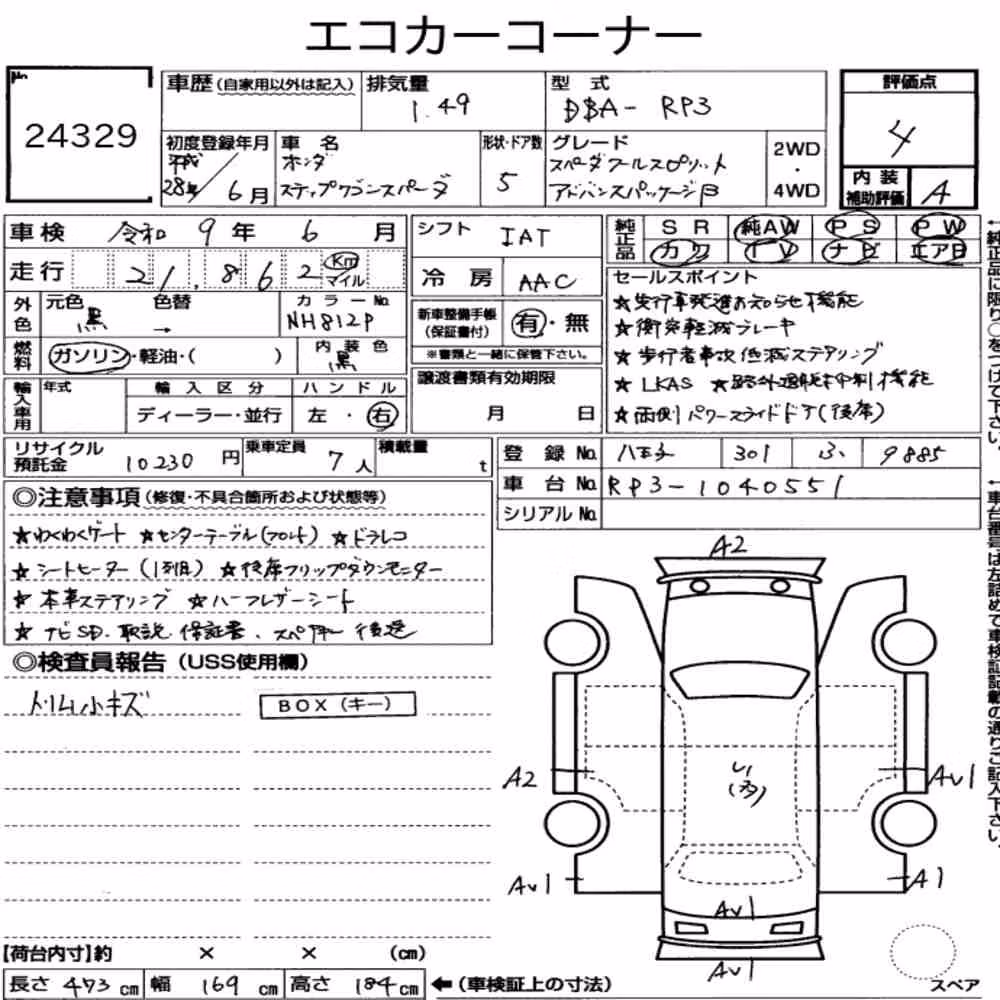 エコカーコーナー
No.
24329
車歴(自家用以外は記入)
排気量
1.49
型式
DBA- RP3
評価点
4
内装
補助評価
A
初度登録年月
平成
28年 6月
車名
ホンダ
ステップワゴンスパーダ
形状・ドア数
5
グレード
スパーダクールスピリット
アドバンスパッケージβ
2WD
・
4WD
車検 令和 9年 6月
走行 21,862 Km マイル
シフト IAT
冷房 AAC
純正品 SR 純AW PS PW
カワ TV ナビ エアB
外色 元色 黒 色替 → カラーNo. NH812P
燃料 ガソリン・軽油・( ) 内装色 黒
新車整備手帳
(保証書付)
有・無
※書類と一緒に保管下さい。
輸入車用 年式 輸入区分 ハンドル
ディーラー・並行 左・右
譲渡書類有効期限
月 日
セールスポイント
★先行車発進お知らせ機能
★衝突軽減ブレーキ
★歩行者事故低減ステアリング
★LKAS ★路外逸脱抑制機能
★両側パワースライドドア(後席)
リサイクル
預託金 10230 円
乗車定員 7人
積載量 t
登録No. 八王子 301 ふ 9885
車台No. RP3-1040551
シリアルNo.
◎注意事項(修復・不具合箇所および状態等)
★わくわくゲート ★センターテーブル(フロント) ★ドラレコ
★シートヒーター(1列目) ★後席フリップダウンモニター
★本革ステアリング ★ハーフレザーシート
★ナビSD、取説、保証書、スペアキー後送
◎検査員報告(USS使用欄)
トリム小キズ
BOX(キー)
A2
A2
U1
(多)
Av1
Av1
Av1
A1
Av1
スペア
【荷台内寸】約 × × (cm)
長さ 473 cm 幅 169 cm 高さ 184 cm ←(車検証上の寸法)
←純正品に限り○をつけて下さい。
←車台番号は左詰めで車検証記載の通りご記入下さい。